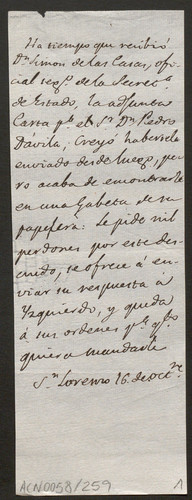 Ha tiempo que recibió
Dn. Simon de las Casas, ofi-
cial segdo. de la Secreta.
de Estado, la adjunta
Carta pa. el Sr. Dn. Pedro
Dávila, Creyó habersela
enviado desde luego, pero
acaba de encontrarla
en una Gabeta de su
papelera: Le pide mil
perdones por este des-
cuido, se ofrece á en-
viar su respuesta à
Yzquierdo, y queda
á sus ordenes pa. qto.
quiera mandarle
Sn. Lorenzo 16. de octre.
ACN0058/259
1